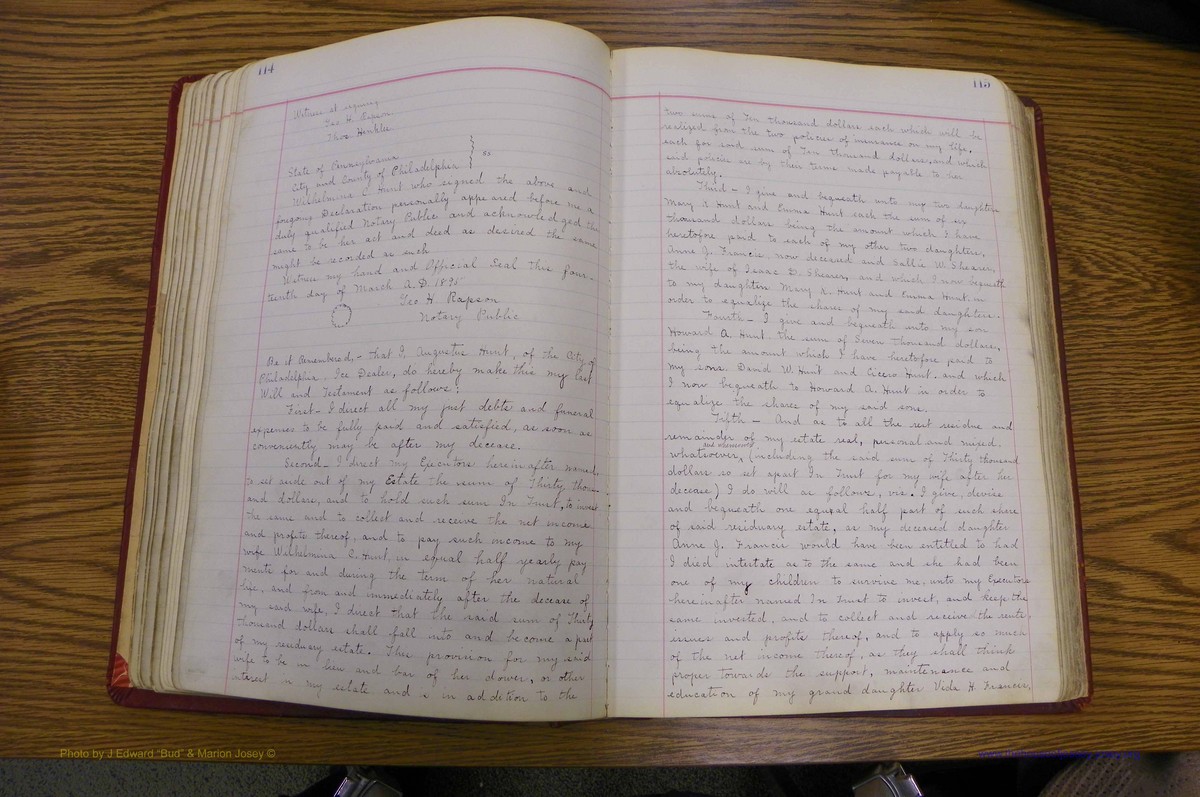 114
Witness at signing
Geo H. Rapson
Thos. Hinkle
State of Pennsylvania
City and County of Philadelphia } ss.
Wilhelmina C. Hunt who signed the above and
foregoing Declaration personally appeared before me a
duly qualified Notary Public and acknowledged the
same to be her act and deed as desired the same
might be recorded as such
Witness my hand and Official Seal this four-
teenth day of March A.D. 1895
Geo H. Rapson
Notary Public
Be it Remembered, - that I, Augustus Hunt, of the City of
Philadelphia, Ice Dealer, do hereby make this my last
Will and Testament as follows:
First - I direct all my just debts and funeral
expenses to be fully paid and satisfied, as soon as
conveniently may be after my decease.
Second - I direct my Executors hereinafter named
to set aside out of my Estate the sum of Thirty thous-
and dollars, and to hold such sum In Trust, to invest
the same and to collect and receive the net income
and profits thereof, and to pay such income to my
wife Wilhelmina C. Hunt, in equal half yearly pay
ments for and during the term of her natural
life, and from and immediately after the decease of
my said wife, I direct that the said sum of Thirty
thousand dollars shall fall into and become a part
of my residuary estate. This provision for my said
wife to be in lieu and bar of her dower, or other
interest in my estate and is in addition to the
115
two sums of Ten thousand dollars each which will be
realized from the two policies of insurance on my life.
each for said sum of Ten thousand dollars, and which
said policies are by their terms made payable to her
absolutely.
Third - I give and bequeath unto my two daughters
Mary R Hunt and Emma Hunt each the sum of
thousand dollars being the amount which I have
heretofore paid to each of my other two daughters,
Anne J. Francis, now deceased and Sallie W. Shearer,
the wife of Isaac D. Shearer, and which I now bequeath
to my daughters Mary R. Hunt and Emma Hunt in
order to equalize the shares of my said daughters.
Fourth - I give and bequeath unto my son
Howard A. Hunt the sum of Seven thousand dollars,
being the amount which I have heretofore paid to
my sons, David W. Hunt and Cicero Hunt. and which
I now bequeath to Howard A. Hunt in order to
equalize the shares of my said sons.
Fifth - And as to all the rest residue and
remainder of my estate real, personal and mixed.
whatsoever, and wheresoever (including the said sum of Thirty thousand
dollars so set apart In Trust for my wife after her
decease) I do will as follows, vis. I give, devise
and bequeath one equal half part of such share
of said residuary estate, as my deceased daughter
Anne J. Francis would have been entitled to had
I died intestate as to the same and she had been
one of my children to survive me, unto my Executors
hereinafter named In Trust to invest, and keep the
same invested, and to collect and receive the rents,
issues and profits thereof, and to apply so much
of the net income thereof, as they shall think
proper towards the support, maintenance and
education of my grand daughter Vida H. Francis,
Photo by J Edward "Bud" & Marion Josey ©